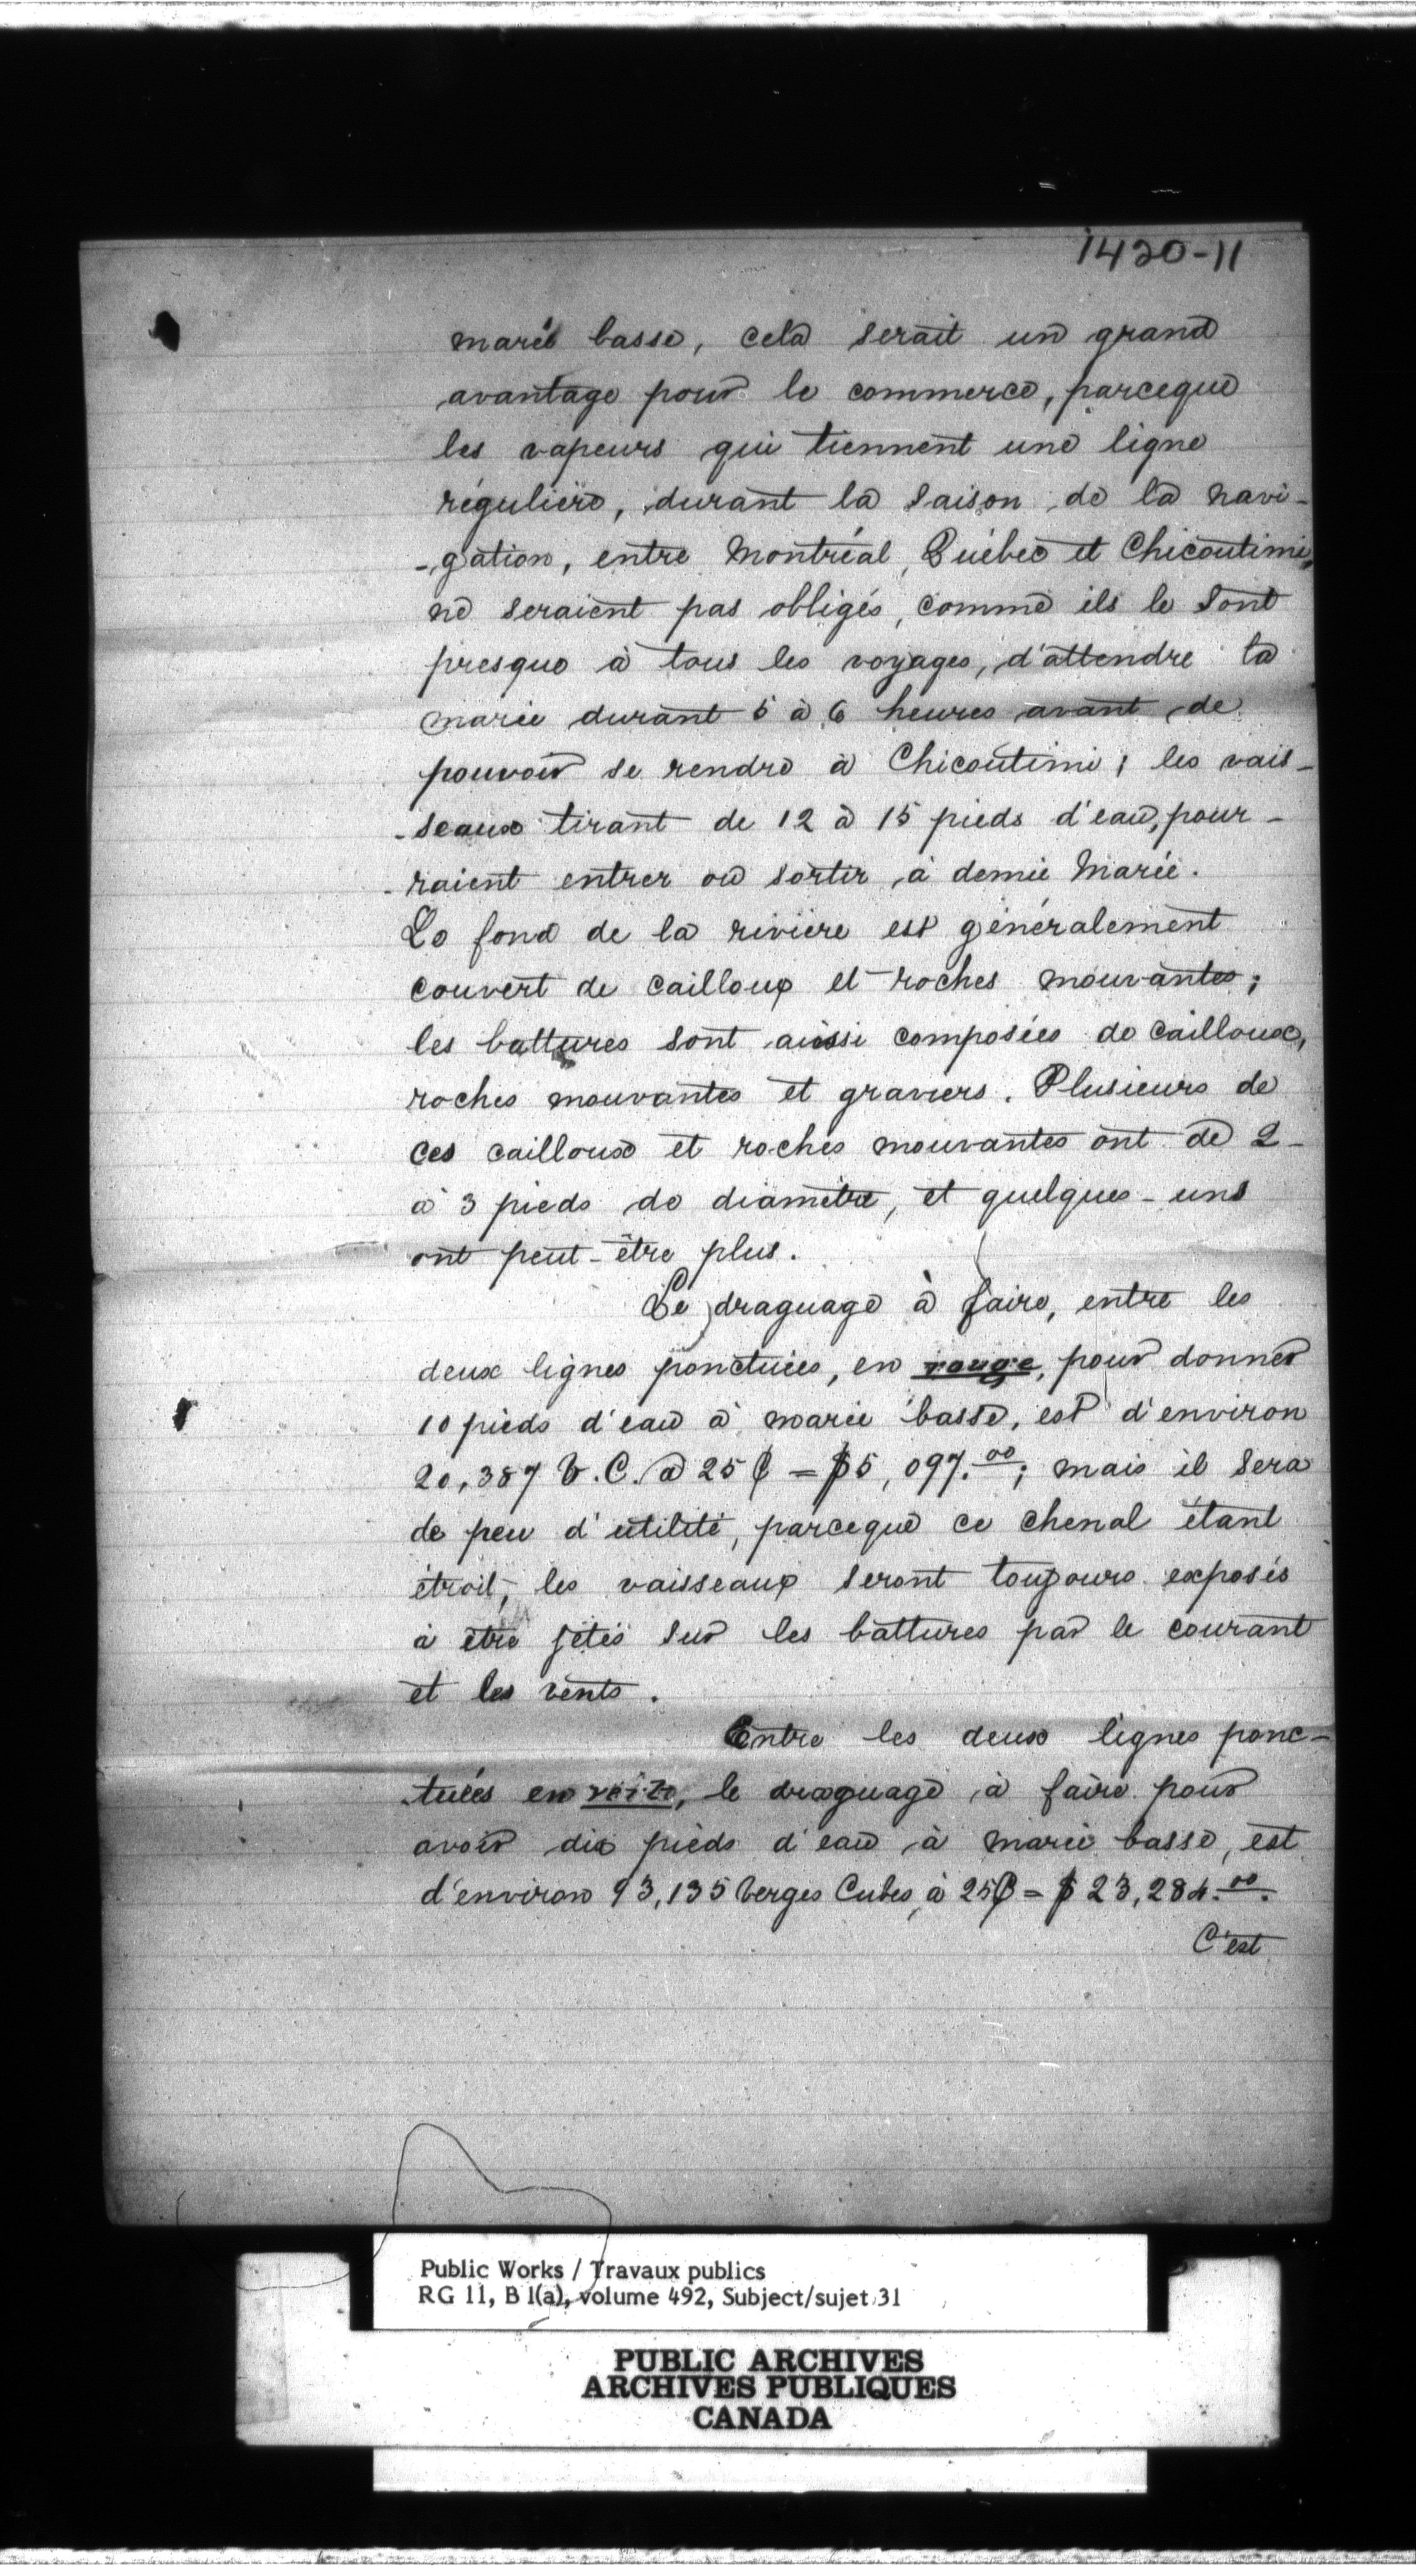 1420-11
marée basse, cela serait un grand
avantage pour le commerce, parceque
les vapeurs qui tiennent une ligne
régulière, durant la saison de la navi-
-gation, entre Montréal, Québec et Chicoutimi,
ne seraient pas obligés, comme ils le sont
presque à tous les voyages, d'attendre la
marée durant 5 à 6 heures avant de
pouvoir se rendre à Chicoutimi; les vais-
-seaux tirant de 12 à 15 pieds d'eau, pour-
-raient entrer ou sortir à demie Marée.
Le fond de la rivière est généralement
couvert de cailloux et roches mouvantes;
les battures sont aussi composées de cailloux,
roches mouvantes et graviers. Plusieurs de
ces cailloux et roches mouvantes ont de 2-
à 3 pieds de diamètre, et quelques-uns
ont peut-être plus.
Le draguage à faire, entre les
deux lignes ponctuées, en rouge, pour donner
10 pieds d'eau à marée basse, est d'environ
20,387 V.C. @ 25 ¢ = $5,097.00; mais il sera
de peu d'utilité, parceque ce chenal étant
étroit, les vaisseaux seront toujours exposés
à être jetés sur les battures par le courant
et les vents.
Entre les deux lignes ponc-
-tuées en verte, le draguage à faire pour
avoir dix pieds d'eau à marée basse, est
d'environ 93,135 Verges Cubes, à 25¢ = $23,284.00.
C'est
Public Works / Travaux publics
RG 11, B 1(a), volume 492, Subject/sujet 31
PUBLIC ARCHIVES
ARCHIVES PUBLIQUES
CANADA